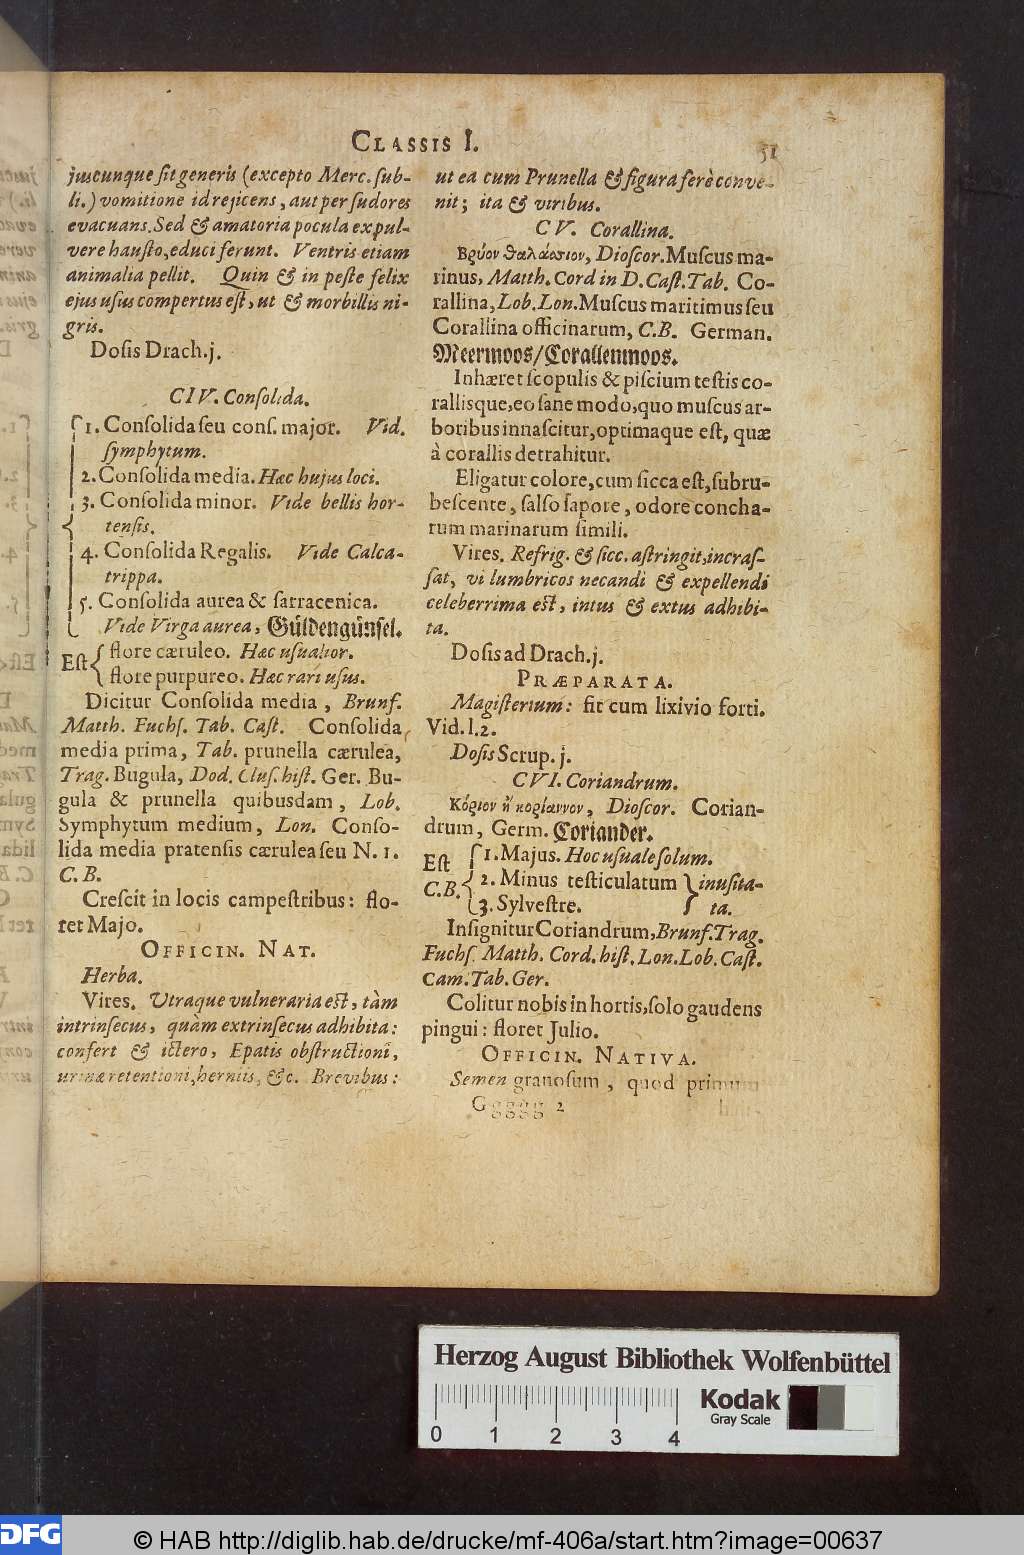 CLASSIS I.
51
juscunque sit generis (excepto Merc. sub-
li.) vomitione id rejicens, aut per sudores
evacuans. Sed & amatoria pocula ex pul-
vere hausto, educi ferunt. Ventris etiam
animalia pellit. Quin & in peste felix
ejus usus compertus est, ut & morbillis ni-
gris.
Dosis Drach. j.
CIV. Consolida.
1. Consolida seu cons. major. Vid.
symphytum.
2. Consolida media. Hæc hujus loci.
3. Consolida minor. Vide bellis hor-
tensis.
4. Consolida Regalis. Vide Calca-
trippa.
5. Consolida aurea & sarracenica.
Vide Virga aurea, Güldengünsel.
Est { flore cæruleo. Hæc usualior.
flore purpureo. Hæc rari usus.
Dicitur Consolida media, Brunf.
Matth. Fuchs. Tab. Cast. Consolida
media prima, Tab. prunella cærulea,
Trag. Bugula, Dod. Clus. hist. Ger. Bu-
gula & prunella quibusdam, Lob.
Symphytum medium, Lon. Conso-
lida media pratensis cærulea seu N. 1.
C. B.
Crescit in locis campestribus: flo-
ret Majo.
OFFICIN. NAT.
Herba.
Vires. Utraque vulneraria est, tàm
intrinsecus, quàm extrinsecus adhibita:
confert & ictero, Epatis obstructioni,
urinæ retentioni, herniis, &c. Brevibus:
ut ea cum Prunella & figura ferè conve-
nit; ita & viribus.
CV. Corallina.
Βρύον θαλάσσιον, Dioscor. Muscus ma-
rinus, Matth. Cord in D. Cast. Tab. Co-
rallina, Lob. Lon. Muscus maritimus seu
Corallina officinarum, C.B. German.
Meermoos/Corallenmoos.
Inhæret scopulis & piscium testis co-
rallisque, eo sane modo, quo muscus ar-
boribus innascitur, optimaque est, quæ
à corallis detrahitur.
Eligatur colore, cum sicca est, subru-
bescente, salso sapore, odore concha-
rum marinarum simili.
Vires. Refrig. & sicc. astringit, incras-
sat, vi lumbricos necandi & expellendi
celeberrima est, intus & extus adhibi-
ta.
Dosis ad Drach. j.
PRÆPARATA.
Magisterium: fit cum lixivio forti.
Vid. l. 2.
Dosis Scrup. j.
CVI. Coriandrum.
Κόριον ἢ κορίαννον, Dioscor. Corian-
drum, Germ. Coriander.
Est { 1. Majus. Hoc usuale solum.
C.B. 2. Minus testiculatum } inusita-
3. Sylvestre. ta.
Insignitur Coriandrum, Brunf. Trag.
Fuchs. Matth. Cord. hist. Lon. Lob. Cast.
Cam. Tab. Ger.
Colitur nobis in hortis, solo gaudens
pingui: floret Julio.
OFFICIN. NATIVA.
Semen granosum, quod primum
Ggggg 2
Herzog August Bibliothek Wolfenbüttel
Kodak
Gray Scale
0 1 2 3 4
DFG
© HAB http://diglib.hab.de/drucke/mf-406a/start.htm?image=00637